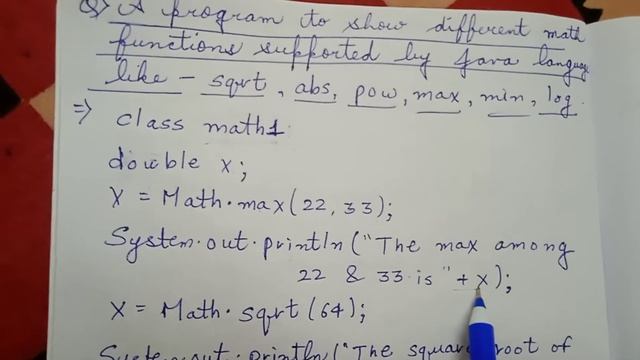 Q) A program to show different math
functions supported by Java language
like - sqrt, abs, pow, max, min, log.
⇒ class math1
double x;
X = Math.max(22, 33);
System.out.println("The max among
22 & 33 is " + x);
X = Math.sqrt(64);
System.out.println("The square root of